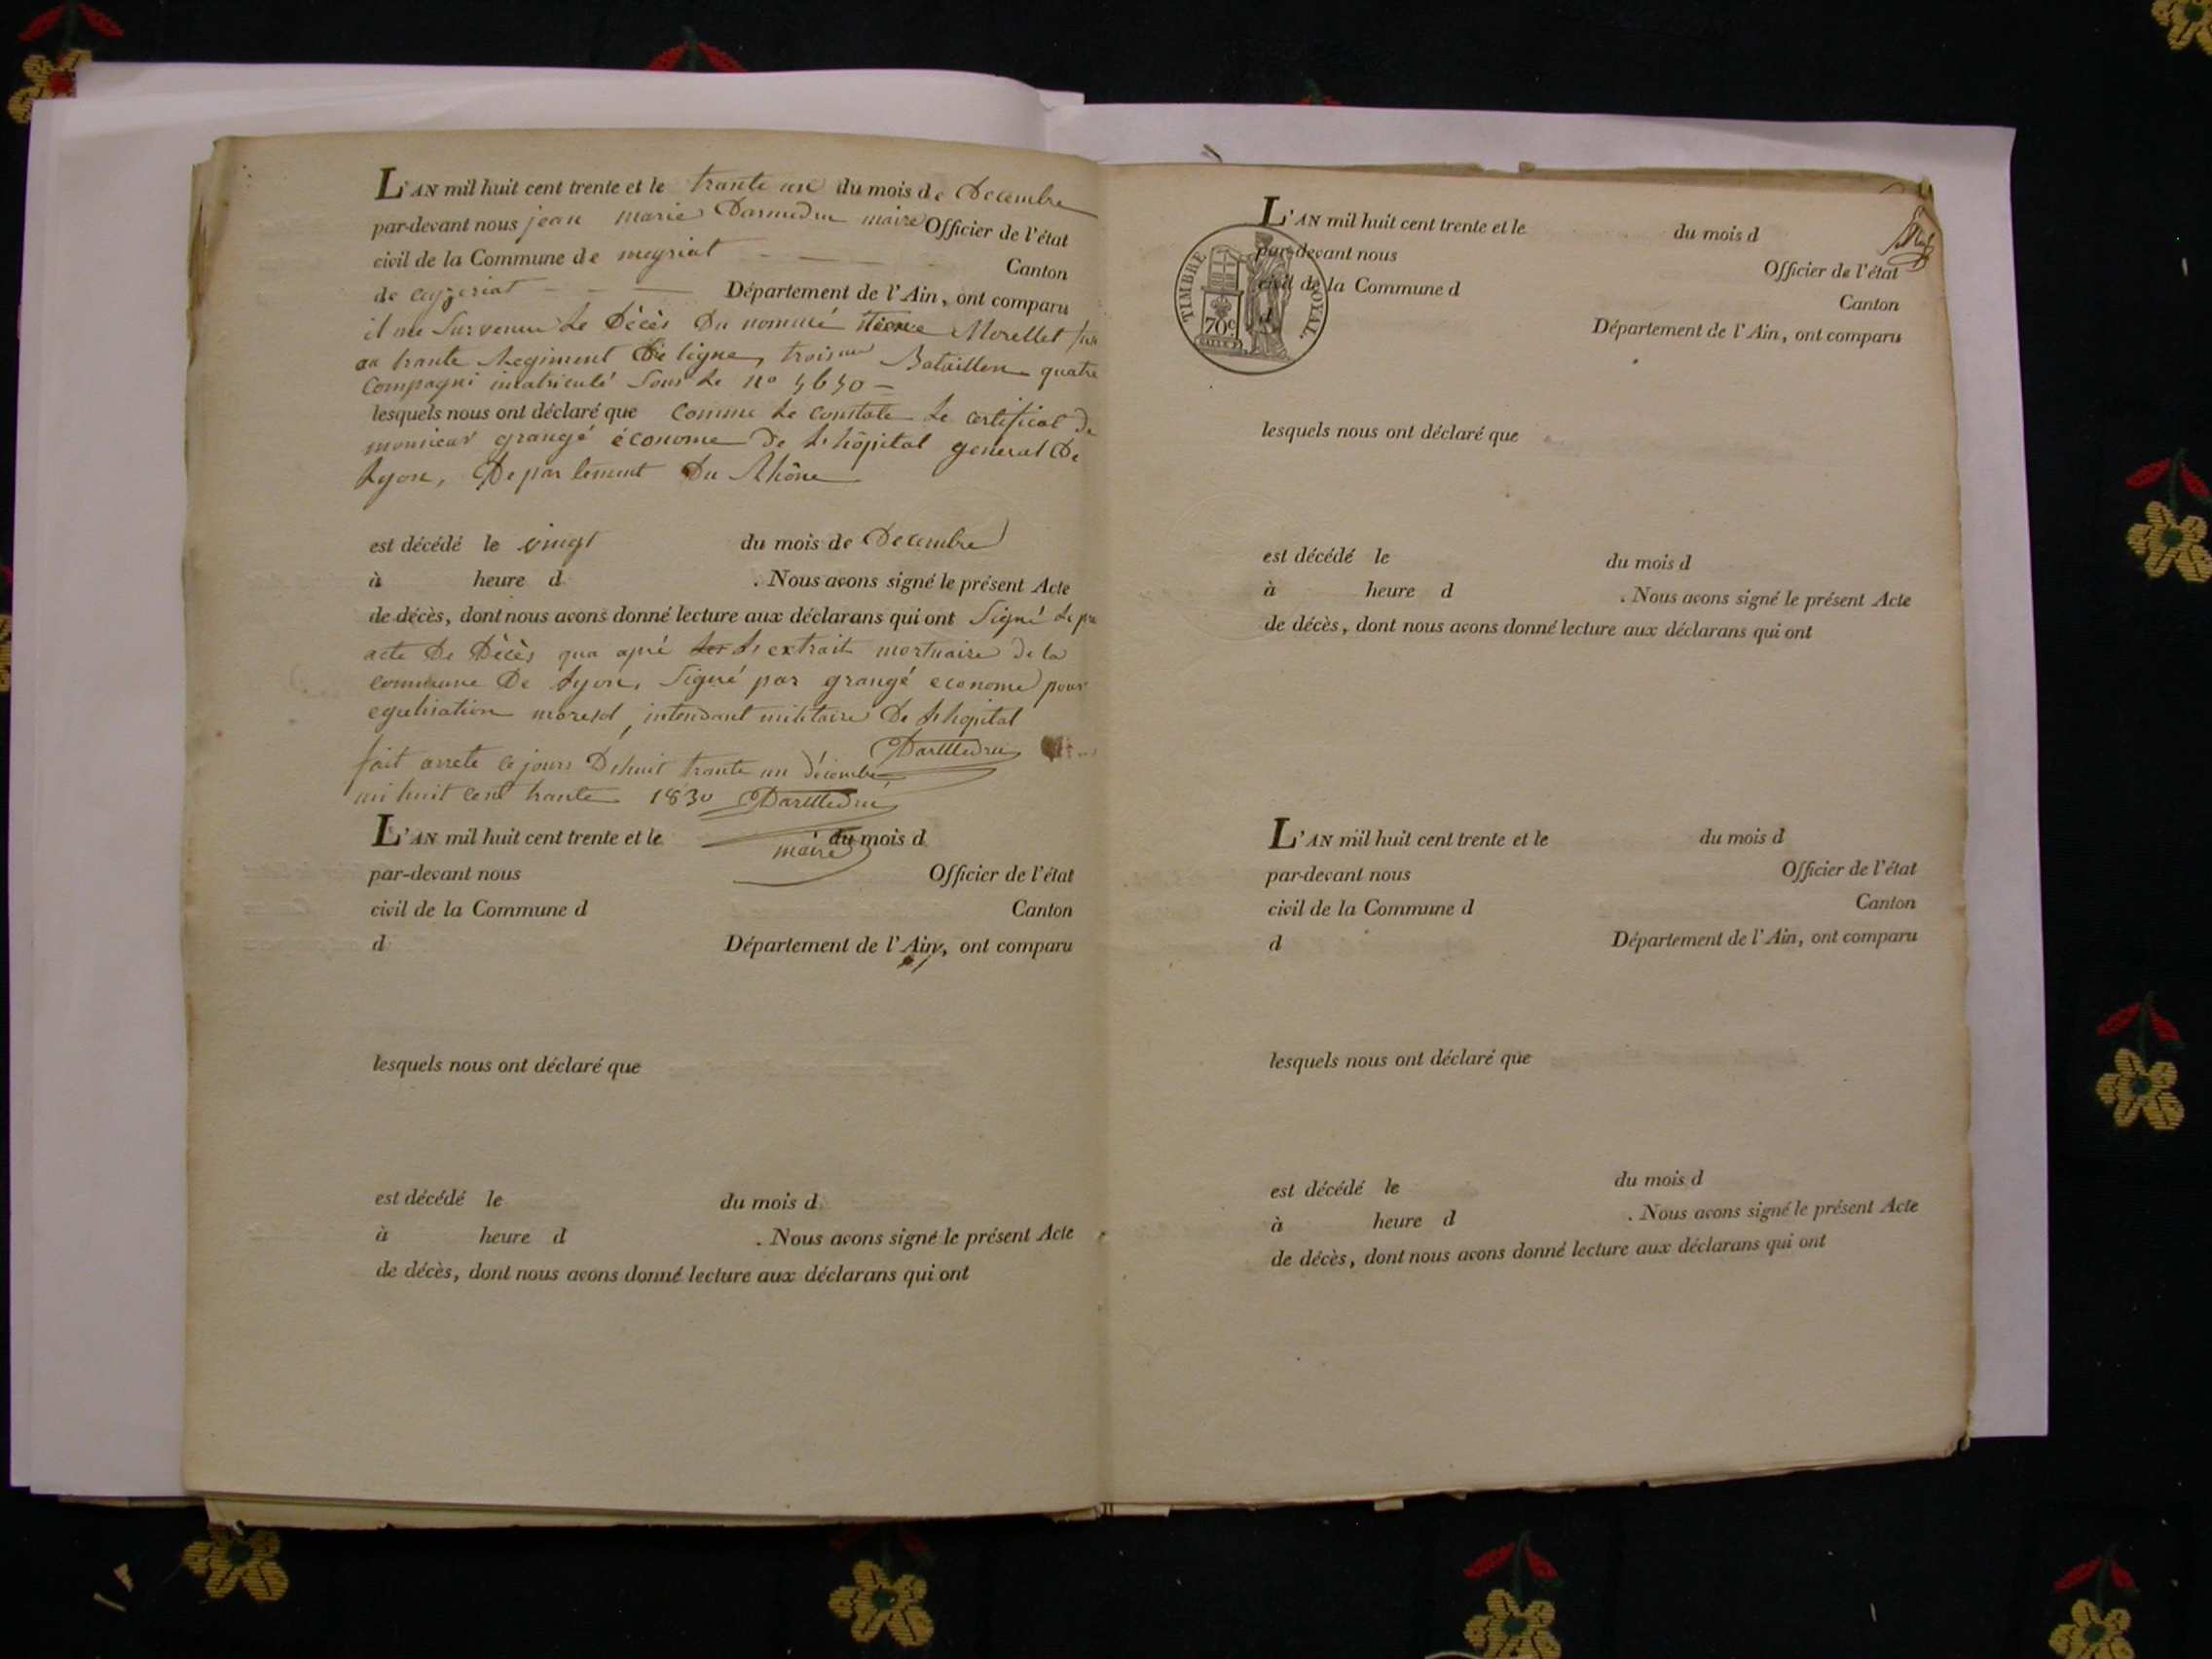 L'AN mil huit cent trente et le trante un du mois de Decembre
par-devant nous jean marie Darmedru maire Officier de l'état
civil de la Commune de meyriat Canton
de ceyzeriat Département de l'Ain, ont comparu
il me survenu le Décès Du nommé Morellet
au trante Regiment De ligne, Bataillon quatre
Compagni imatriculé Sous le no 5650
lesquels nous ont déclaré que Comme le constate le certificat de
monsieur grangé économe De l'hôpital general De
Lyon, Departement Du Rhône
est décédé le vingt du mois de Decembre
à heure d . Nous avons signé le présent Acte
de décès, dont nous avons donné lecture aux déclarans qui ont Signé le
acte De Décès qua apré l'extrait mortuaire de la
commune De Lyon, Signé par grangé econome pour
intendant militaire De l'hopital
Darmedru
fait arrete ce jours trante un décembre
mi huit cent trante 1830 Darmedru
maire
L'AN mil huit cent trente et le du mois d
par-devant nous Officier de l'état
civil de la Commune d Canton
d Département de l'Ain, ont comparu
lesquels nous ont déclaré que
est décédé le du mois d
à heure d . Nous avons signé le présent Acte
de décès, dont nous avons donné lecture aux déclarans qui ont
L'AN mil huit cent trente et le du mois d
par-devant nous Officier de l'état
civil de la Commune d Canton
d Département de l'Ain, ont comparu
TIMBRE ROYAL.
70c
lesquels nous ont déclaré que
est décédé le du mois d
à heure d . Nous avons signé le présent Acte
de décès, dont nous avons donné lecture aux déclarans qui ont
L'AN mil huit cent trente et le du mois d
par-devant nous Officier de l'état
civil de la Commune d Canton
d Département de l'Ain, ont comparu
lesquels nous ont déclaré que
est décédé le du mois d
à heure d . Nous avons signé le présent Acte
de décès, dont nous avons donné lecture aux déclarans qui ont